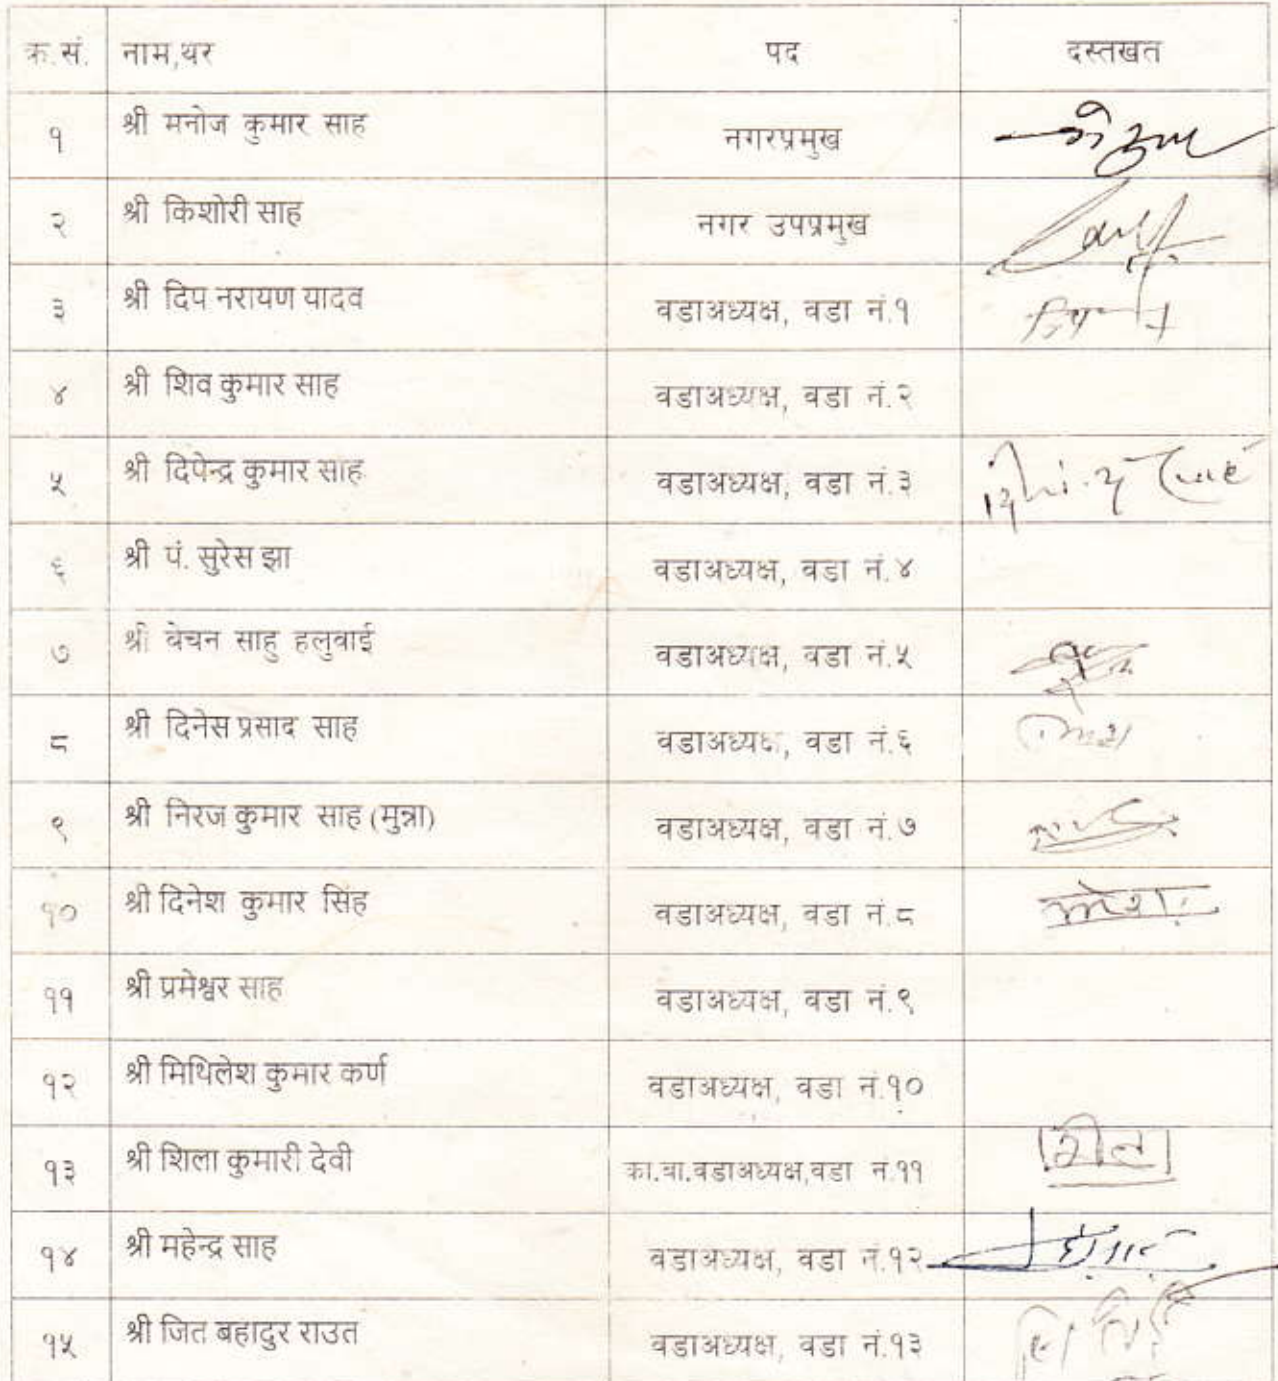 क्र.सं. नाम,थर पद दस्तखत
१ श्री मनोज कुमार साह नगरप्रमुख
२ श्री किशोरी साह नगर उपप्रमुख
३ श्री दिप नरायण यादव वडाअध्यक्ष, वडा नं.१
४ श्री शिव कुमार साह वडाअध्यक्ष, वडा नं.२
५ श्री दिपेन्द्र कुमार साह वडाअध्यक्ष, वडा नं.३
६ श्री पं. सुरेस झा वडाअध्यक्ष, वडा नं.४
७ श्री बेचन साहु हलुवाई वडाअध्यक्ष, वडा नं.५
८ श्री दिनेस प्रसाद साह वडाअध्यक्ष, वडा नं.६
९ श्री निरज कुमार साह (मुन्ना) वडाअध्यक्ष, वडा नं.७
१० श्री दिनेश कुमार सिंह वडाअध्यक्ष, वडा नं.८
११ श्री प्रमेश्वर साह वडाअध्यक्ष, वडा नं.९
१२ श्री मिथिलेश कुमार कर्ण वडाअध्यक्ष, वडा नं.१०
१३ श्री शिला कुमारी देवी का.वा.वडाअध्यक्ष,वडा नं.११
१४ श्री महेन्द्र साह वडाअध्यक्ष, वडा नं.१२
१५ श्री जित बहादुर राउत वडाअध्यक्ष, वडा नं.१३